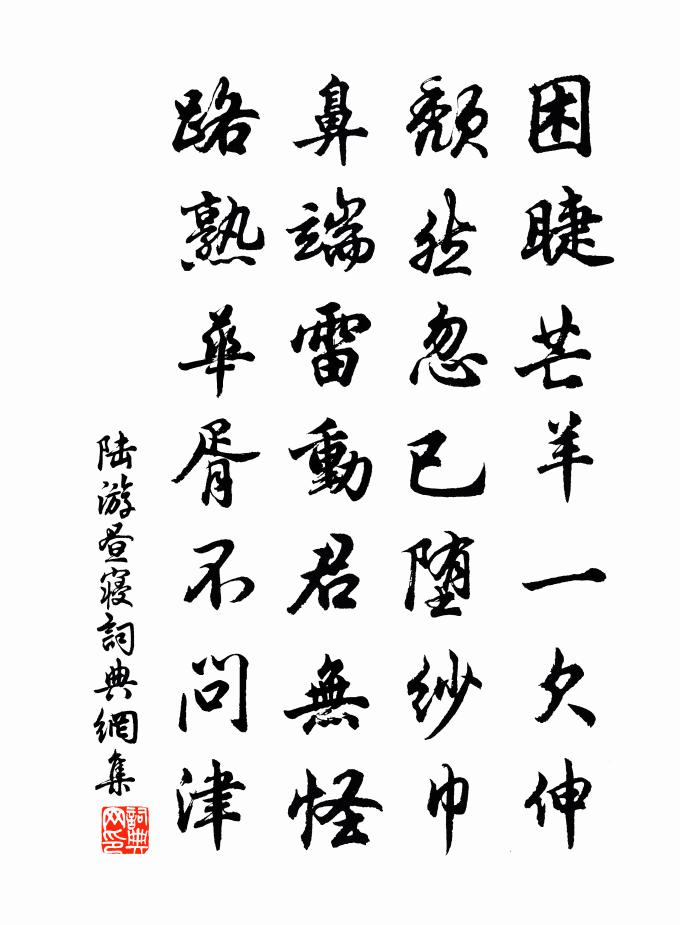 困睫芒羊一欠伸
頹然忽已堕紗巾
鼻端雷動君無怪
路熟華胥不問津
陆游昼寝詞典網集
詞典网印